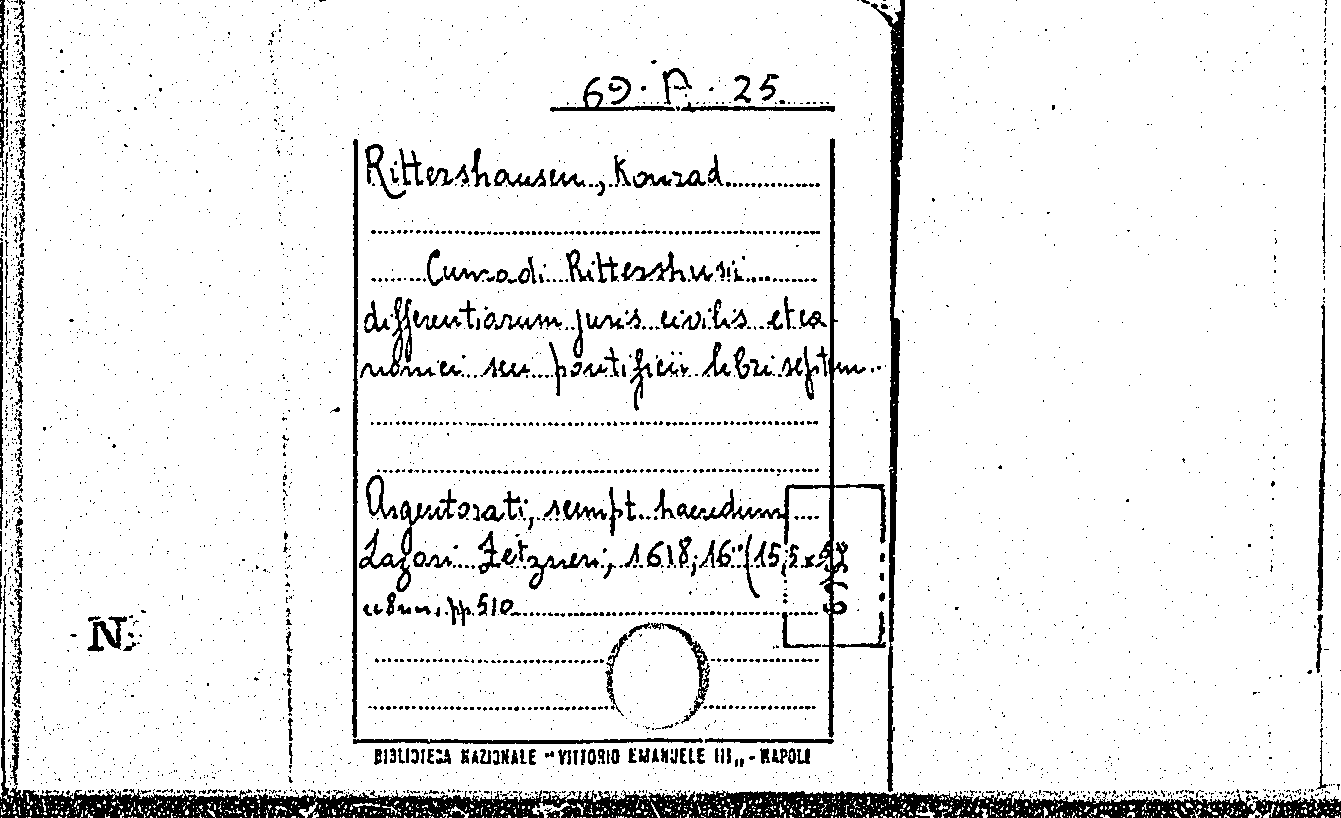 69. A. 25.
Rittershausen, Konrad
Cunradi Rittershusii
differentiarum juris civilis et ca
nonici seu pontificii libri septem.
Argentorati, sumpt. haeredum
Lazari Zetzneri, 1618; 16° (15,5 x
pp. 510
N
BIBLIOTECA NAZIONALE "VITTORIO EMANUELE III„ - NAPOLI